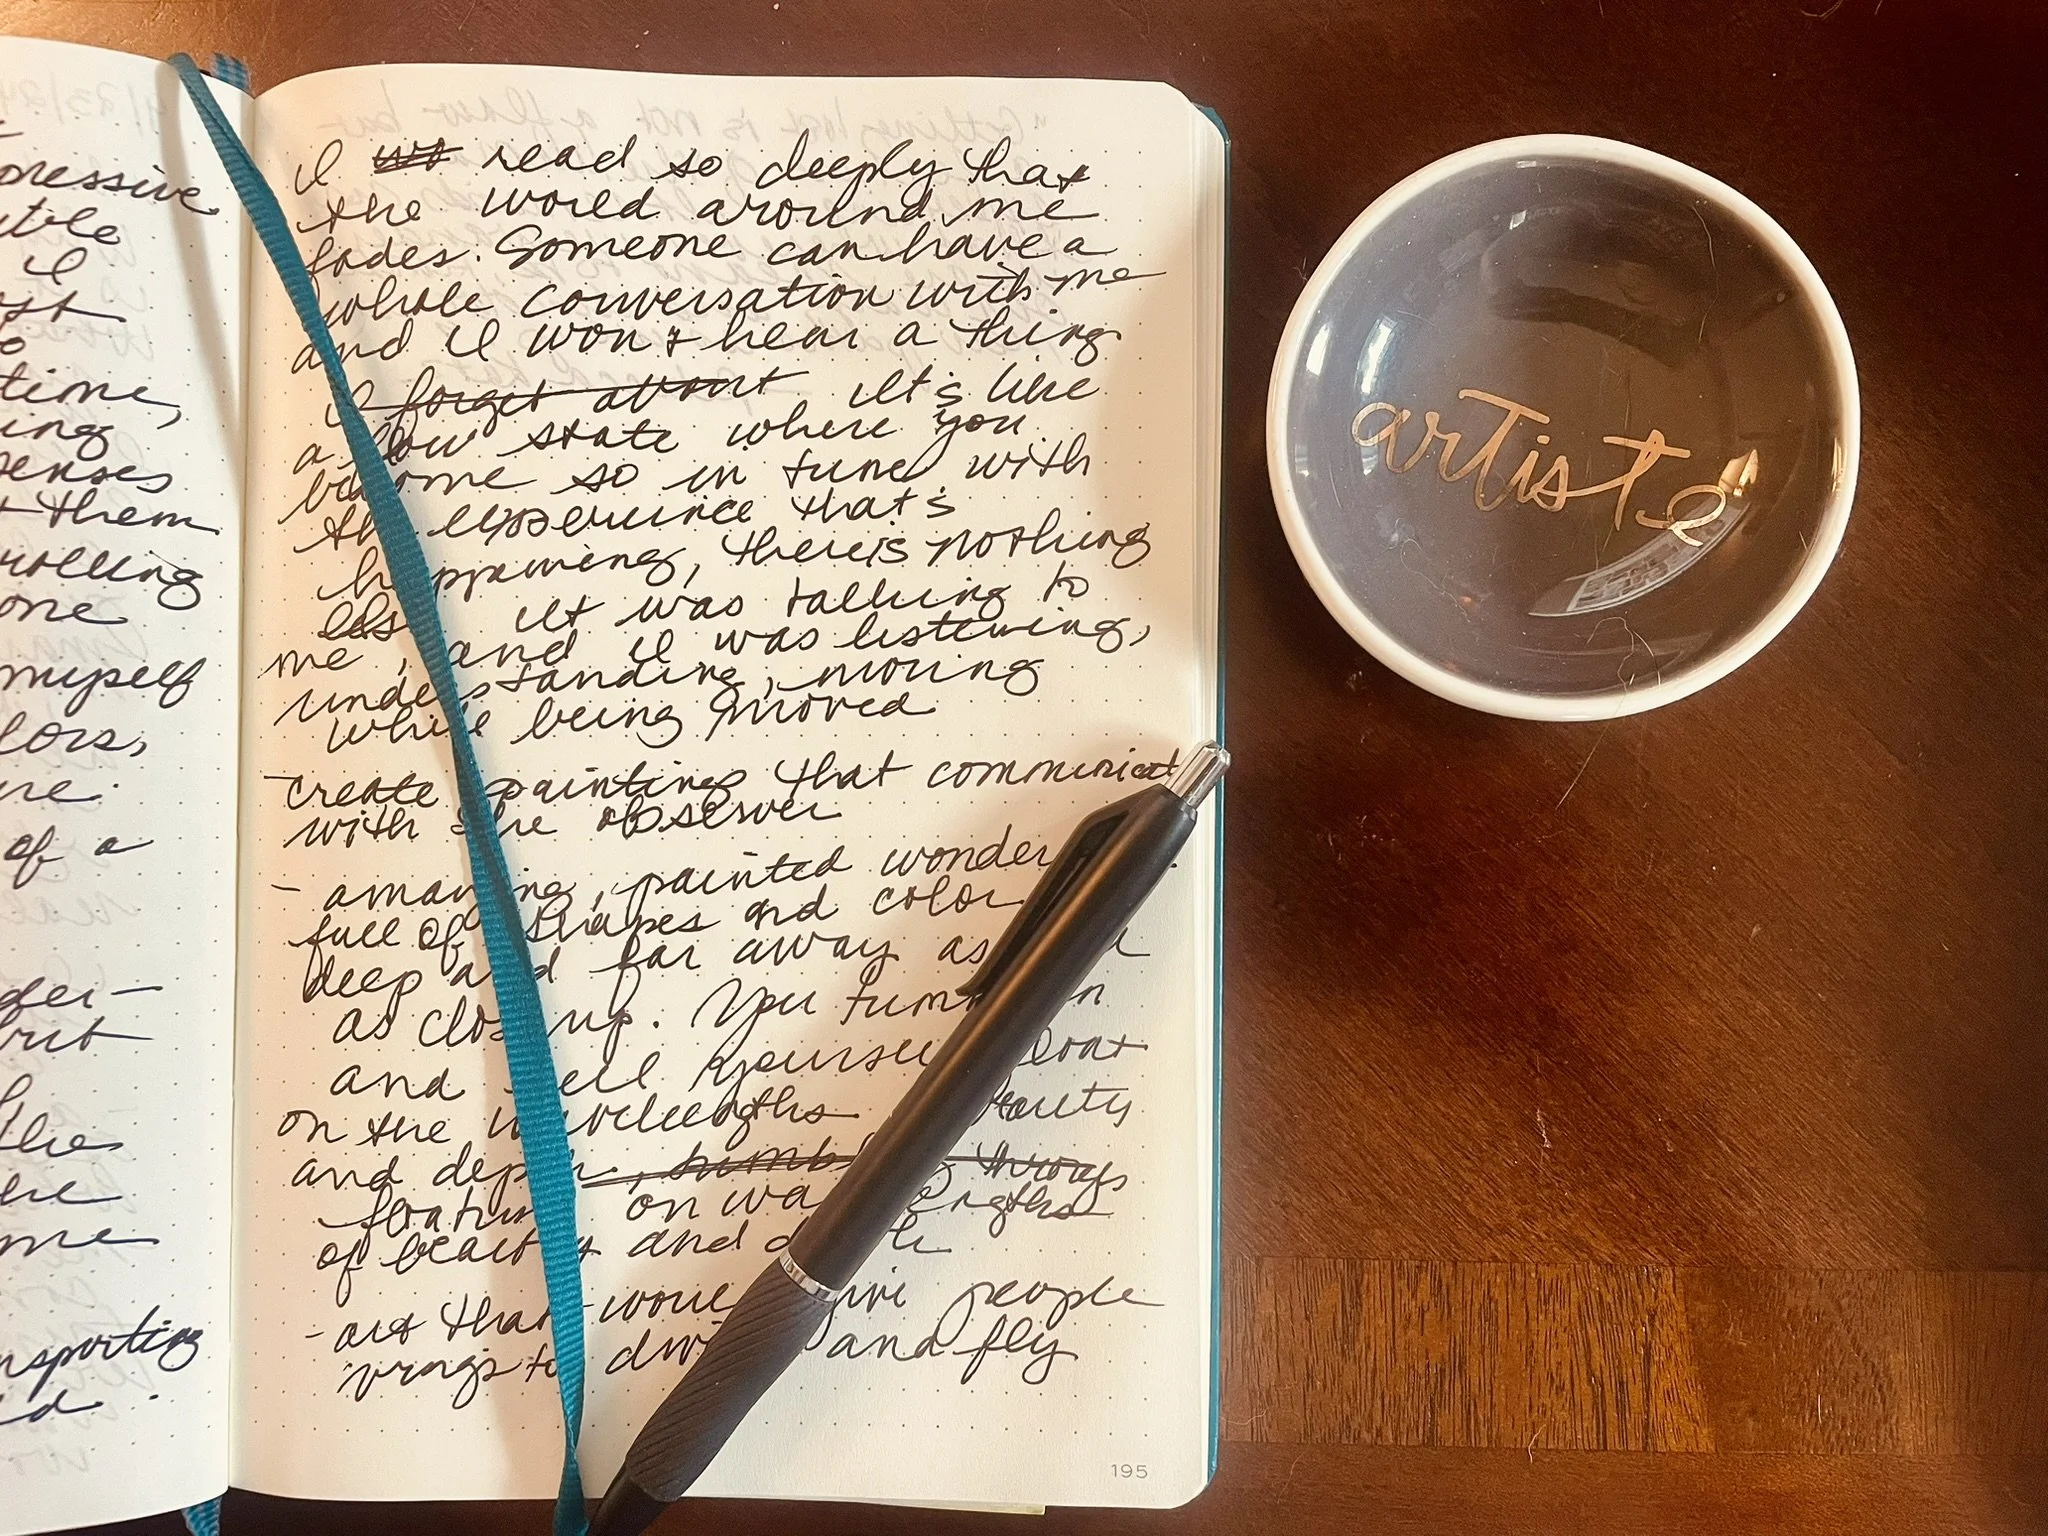 pressive
I
time,
enses
+ them
rolling
one
myself
lors,
of a
the
me
nsporting
I read so deeply that
the world around me
fades. Someone can have a
whole conversation with me
and I won't hear a thing.
I forget about It's like
a flow state where you
become so in tune with
the experience that's
happening, there is nothing
else. It was talking to
me, and I was listening,
understanding, moving
while being moved
- create paintings that communicat
with the observer
- amazing, painted wonder
full of shapes and color
deep and far away as
as close up. You tune in
and feel yourself float
on the wavelengths beauty
and depth, things
floating on wavelengths
of beauty and depth
- art that would give people
wings to dwi and fly
195
artist